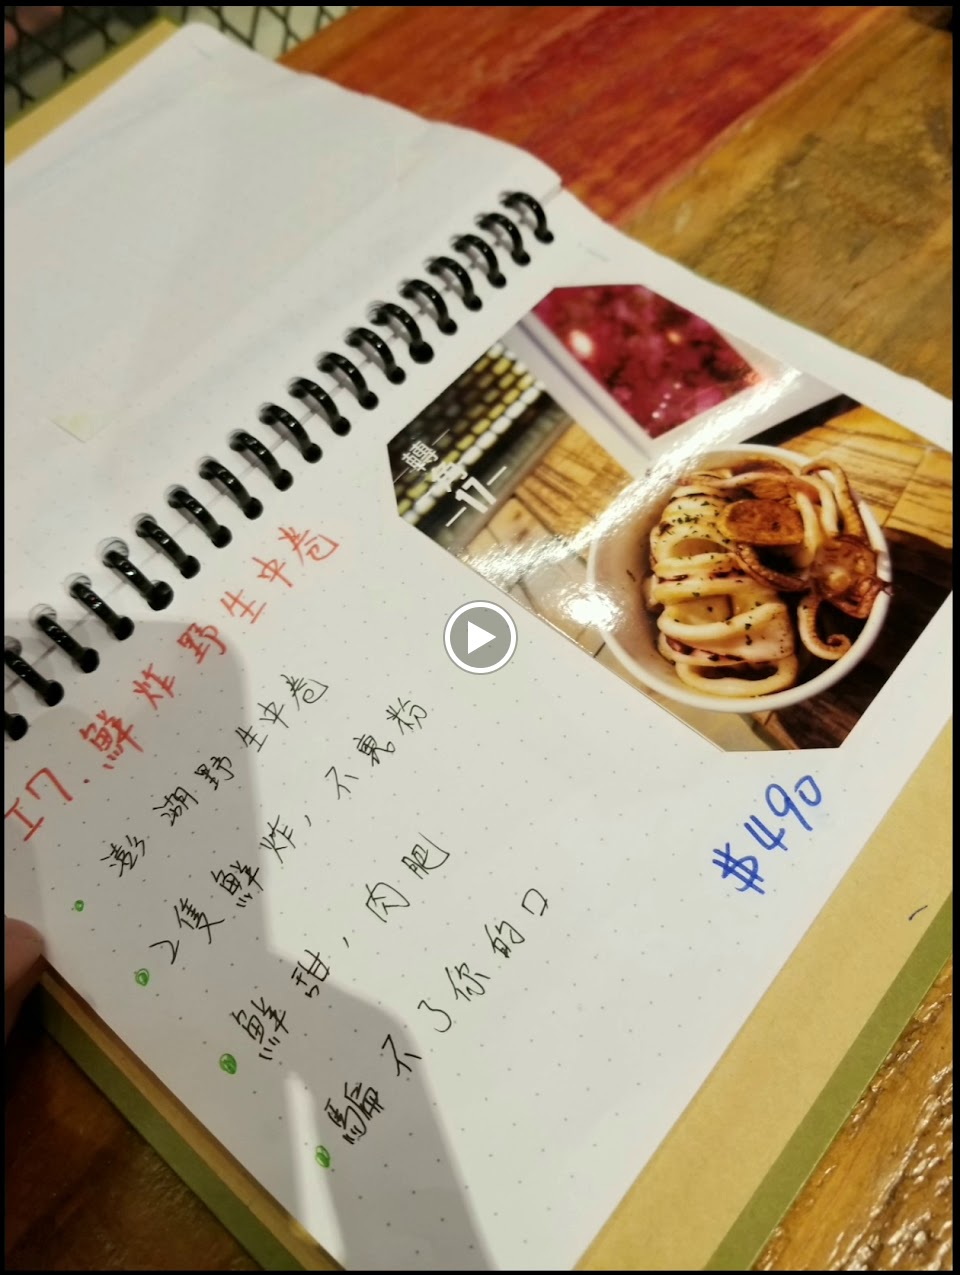 17. 鮮炸野生中卷
澎湖野生中卷
2隻鮮炸,不裹粉
鮮甜,肉肥
騙不了你的口
$490
轉
17